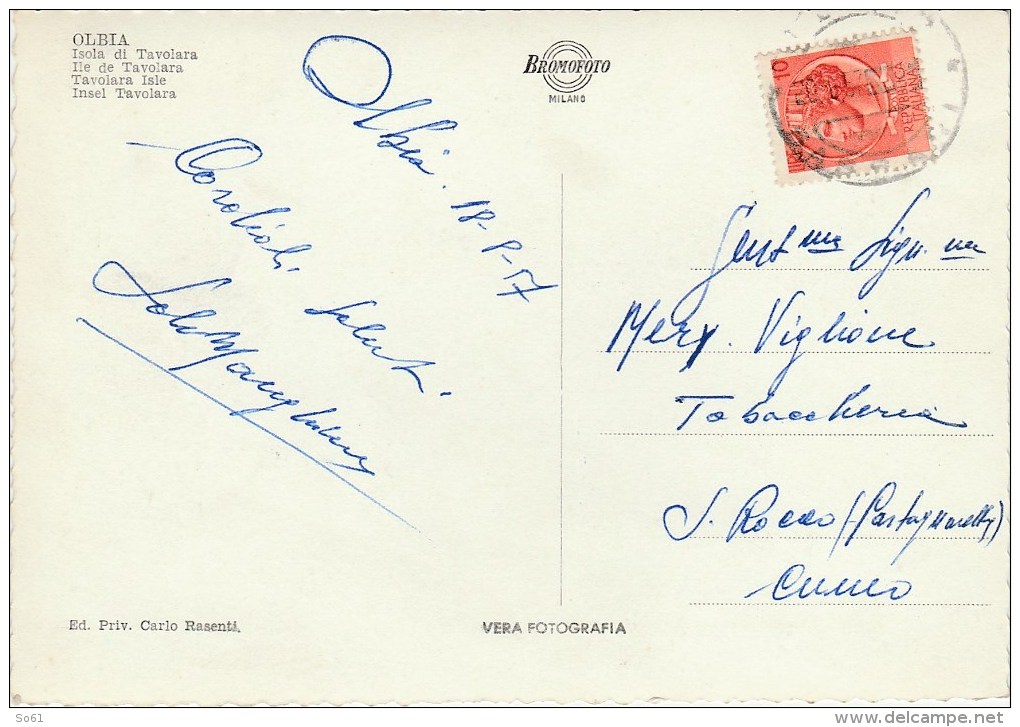 OLBIA
Isola di Tavolara
Ile de Tavolara
Tavolara Isle
Insel Tavolara
BROMOFOTO
MILANO
10
REPVBBLICA
ITALIANA
Olbia. 18-8-57
Cordiali
Saluti.
Gent.ma Sign.na
Mery. Viglione
Tabaccheria
S. Rocco (Castagnaretta)
Cuneo
Ed. Priv. Carlo Rasenti.
VERA FOTOGRAFIA
So61
delcampe.net